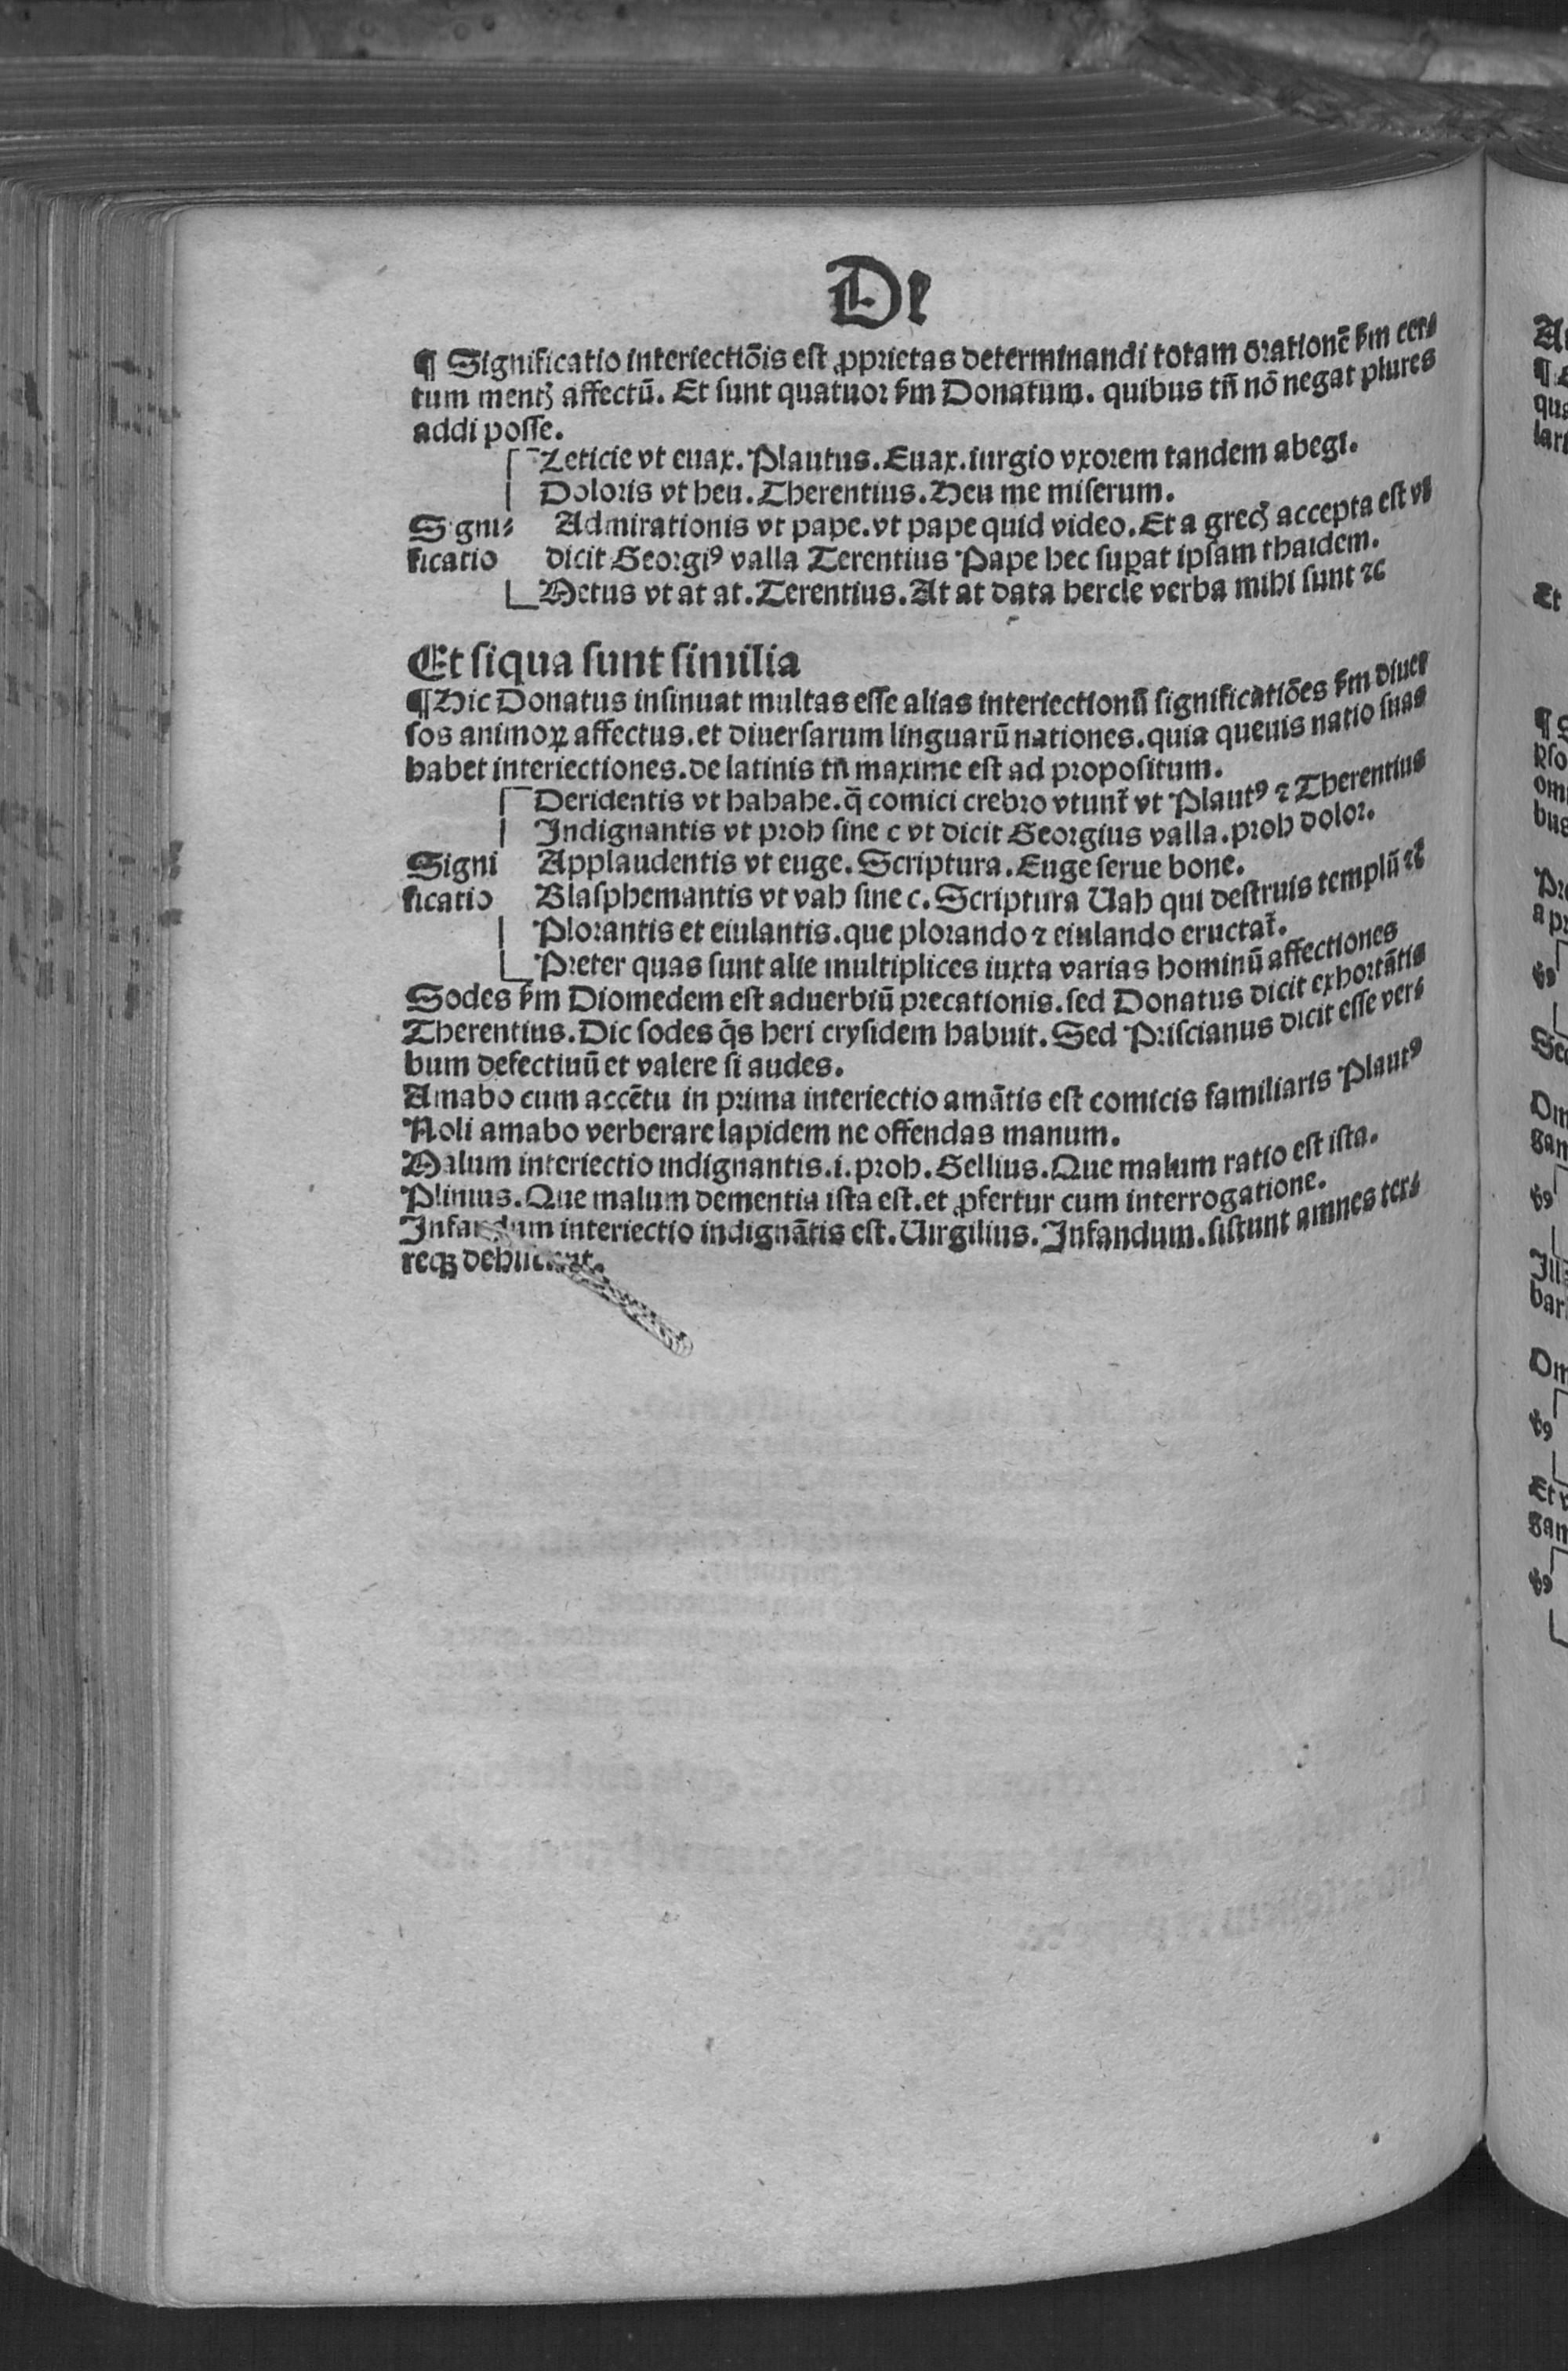 De
¶ Significatio interiectiōis est ꝓprietas determinandi totam orationē ẜm cer⸗
tum mentꝭ affectū. Et sunt quatuor ẜm Donatum. quibus tñ nō negat plures
addi posse.
Leticie vt euax. Plautus. Euax. iurgio vxorem tandem abegi.
Doloris vt heu. Therentius. Heu me miserum.
Signi⸗ Admirationis vt pape. vt pape quid video. Et a grecꝭ accepta est vt
ficatio dicit Georgiꝰ valla Terentius Pape hec suꝑat ipsam thaidem.
Metus vt at at. Terentius. At at data hercle verba mihi sunt ⁊c
Et siqua sunt similia
¶ Hic Donatus insinuat multas esse alias interiectionū significatiōes ẜm diuer
sos animoꝝ affectus. et diuersarum linguarū nationes. quia queuis natio suas
habet interiectiones. de latinis tñ maxime est ad propositum.
Deridentis vt hahahe. q̄ comici crebro vtunt᷑ vt Plautꝰ ⁊ Therentius
Indignantis vt proh sine c vt dicit Georgius valla. proh dolor.
Signi Applaudentis vt euge. Scriptura. Euge serue bone.
ficatio Blasphemantis vt vah sine c. Scriptura Uah qui destruis templū ⁊c̄
Plorantis et eiulantis. que plorando ⁊ eiulando eructat᷑.
Preter quas sunt alie multiplices iuxta varias hominū affectiones
Sodes ẜm Diomedem est aduerbiū precationis. sed Donatus dicit exhortātis
Therentius. Dic sodes q̄s heri crysidem habuit. Sed Priscianus dicit esse ver⸗
bum defectiuū et valere si audes.
Amabo cum accētu in prima interiectio amātis est comicis familiaris Plautꝰ
Noli amabo verberare lapidem ne offendas manum.
Malum interiectio indignantis .i. proh. Gellius. Que malum ratio est ista.
Plinius. Que malum dementia ista est. et ꝓfertur cum interrogatione.
Infandum interiectio indignātis est. Uirgilius. Infandum. sistunt amnes ter⸗
reqꝫ dehiscunt.